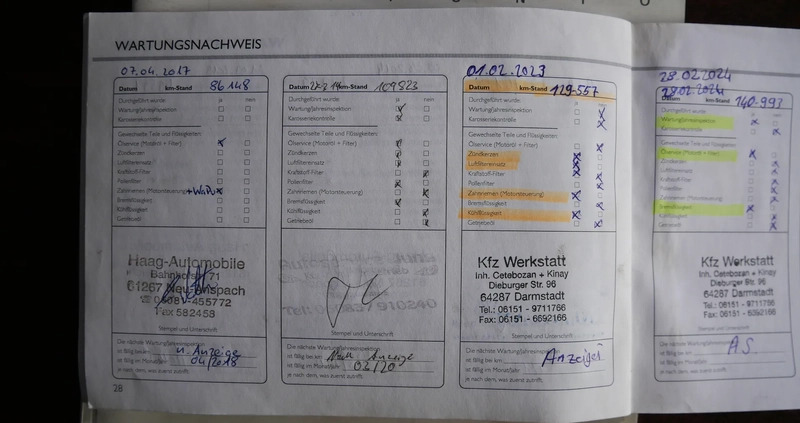 WARTUNGSNACHWEIS
07.04.2017
km-Stand 86148
Durchgeführt wurde: ja nein
Wartung/Jahresinspektion
Karosseriekontrolle
Gewechselte Teile und Flüssigkeiten:
Ölservice (Motoröl + Filter)
Zündkerzen
Luftfiltereinsatz
Kraftstoff-Filter
Pollenfilter
Zahnriemen (Motorsteuerung) +WaPu
Bremsflüssigkeit
Kühlflüssigkeit
Getriebeöl
Haag-Automobile
Bahnhofstr. 71
61267 Neu-Anspach
455772
Fax 582458
Stempel und Unterschrift
Die nächste Wartung/Jahresinspektion
ist fällig bei km n. Anzeige
ist fällig im Monat/Jahr 04/2018
je nach dem, was zuerst zutrifft.
28
Datum km-Stand 109823
Durchgeführt wurde: ja nein
Wartung/Jahresinspektion
Karosseriekontrolle
Gewechselte Teile und Flüssigkeiten:
Ölservice (Motoröl + Filter)
Zündkerzen
Luftfiltereinsatz
Kraftstoff-Filter
Pollenfilter
Zahnriemen (Motorsteuerung)
Bremsflüssigkeit
Kühlflüssigkeit
Getriebeöl
Stempel und Unterschrift
Die nächste Wartung/Jahresinspektion
ist fällig bei km Nach Anzeige
ist fällig im Monat/Jahr 02/20
je nach dem, was zuerst zutrifft.
01.02.2023
Datum km-Stand 129-557
Durchgeführt wurde: ja nein
Wartung/Jahresinspektion
Karosseriekontrolle
Gewechselte Teile und Flüssigkeiten:
Ölservice (Motoröl + Filter)
Zündkerzen
Luftfiltereinsatz
Kraftstoff-Filter
Pollenfilter
Zahnriemen (Motorsteuerung)
Bremsflüssigkeit
Kühlflüssigkeit
Getriebeöl
Kfz Werkstatt
Inh. Cetebozan + Kinay
Dieburger Str. 96
64287 Darmstadt
Tel.: 06151 - 9711766
Fax: 06151 - 6692166
Stempel und Unterschrift
Die nächste Wartung/Jahresinspektion
ist fällig bei km Anzeige
ist fällig im Monat/Jahr
je nach dem, was zuerst zutrifft.
28.02.2024
28.02.2024
Datum km-Stand 140-993
Durchgeführt wurde: ja nein
Wartung/Jahresinspektion
Karosseriekontrolle
Gewechselte Teile und Flüssigkeiten:
Ölservice (Motoröl + Filter)
Zündkerzen
Luftfiltereinsatz
Kraftstoff-Filter
Pollenfilter
Zahnriemen (Motorsteuerung)
Bremsflüssigkeit
Kühlflüssigkeit
Getriebeöl
Kfz Werkstatt
Inh. Cetebozan + Kinay
Dieburger Str. 96
64287 Darmstadt
Tel.: 06151 - 9711766
Fax: 06151 - 6692166
Stempel und Unterschrift
Die nächste Wartung/Jahresinspektion
ist fällig bei km AS
ist fällig im Monat/Jahr
je nach dem, was zuerst zutrifft.